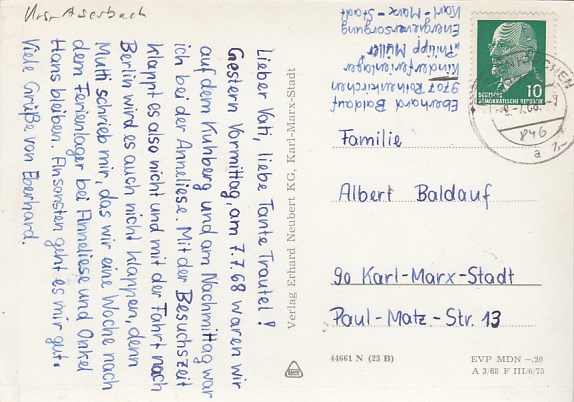 Ursr Auerbach
Lieber Vati, liebe Tante Trautel!
Gestern Vormittag, am 7.7.68 waren wir
auf dem Kuhberg und am Nachmittag war
ich bei der Anneliese. Mit der Besuchszeit
klappt es also nicht und mit der Fahrt nach
Berlin wird es auch nicht klappen, denn
Mutti schrieb mir, das wir eine Woche nach
dem Ferienlager bei Anneliese und Onkel
Hans bleiben. Ansorsten geht es mir gut.
Viele Grüße von Eberhard.
Verlag Erhard Neubert KG, Karl-Marx-Stadt
Eberhard Baldauf
9707 Rothenkirchen
Kinderferienlager
"Philipp Müller"
Energieversorgung
Karl-Marx-Stadt
10
DEUTSCHE
DEMOKRATISCHE REPUBLIK
846
a 1,-
Familie
Albert Baldauf
90 Karl-Marx-Stadt
Paul-Matz-Str. 13
44661 N (23 B)
EVP MDN -.20
A 3/68 F III/6/75